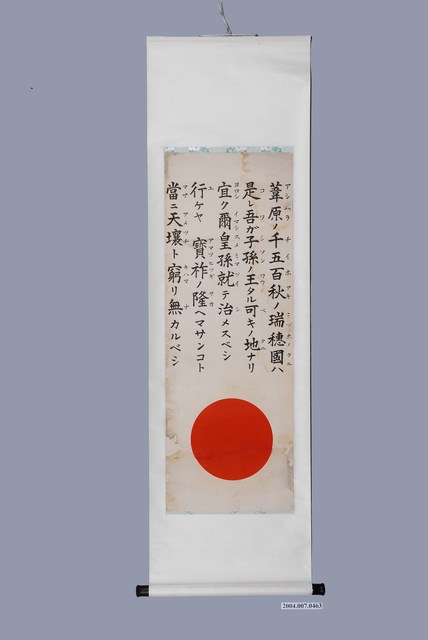 葦原ノ千五百秋ノ瑞穗國ハ
是レ吾ガ子孫ノ王タル可キノ地ナリ
宜ク爾皇孫就テ治メスベシ
行ケヤ 寶祚ノ隆ヘマサンコト
當ニ天壤ト窮リ無カルベシ
2004.007.0463